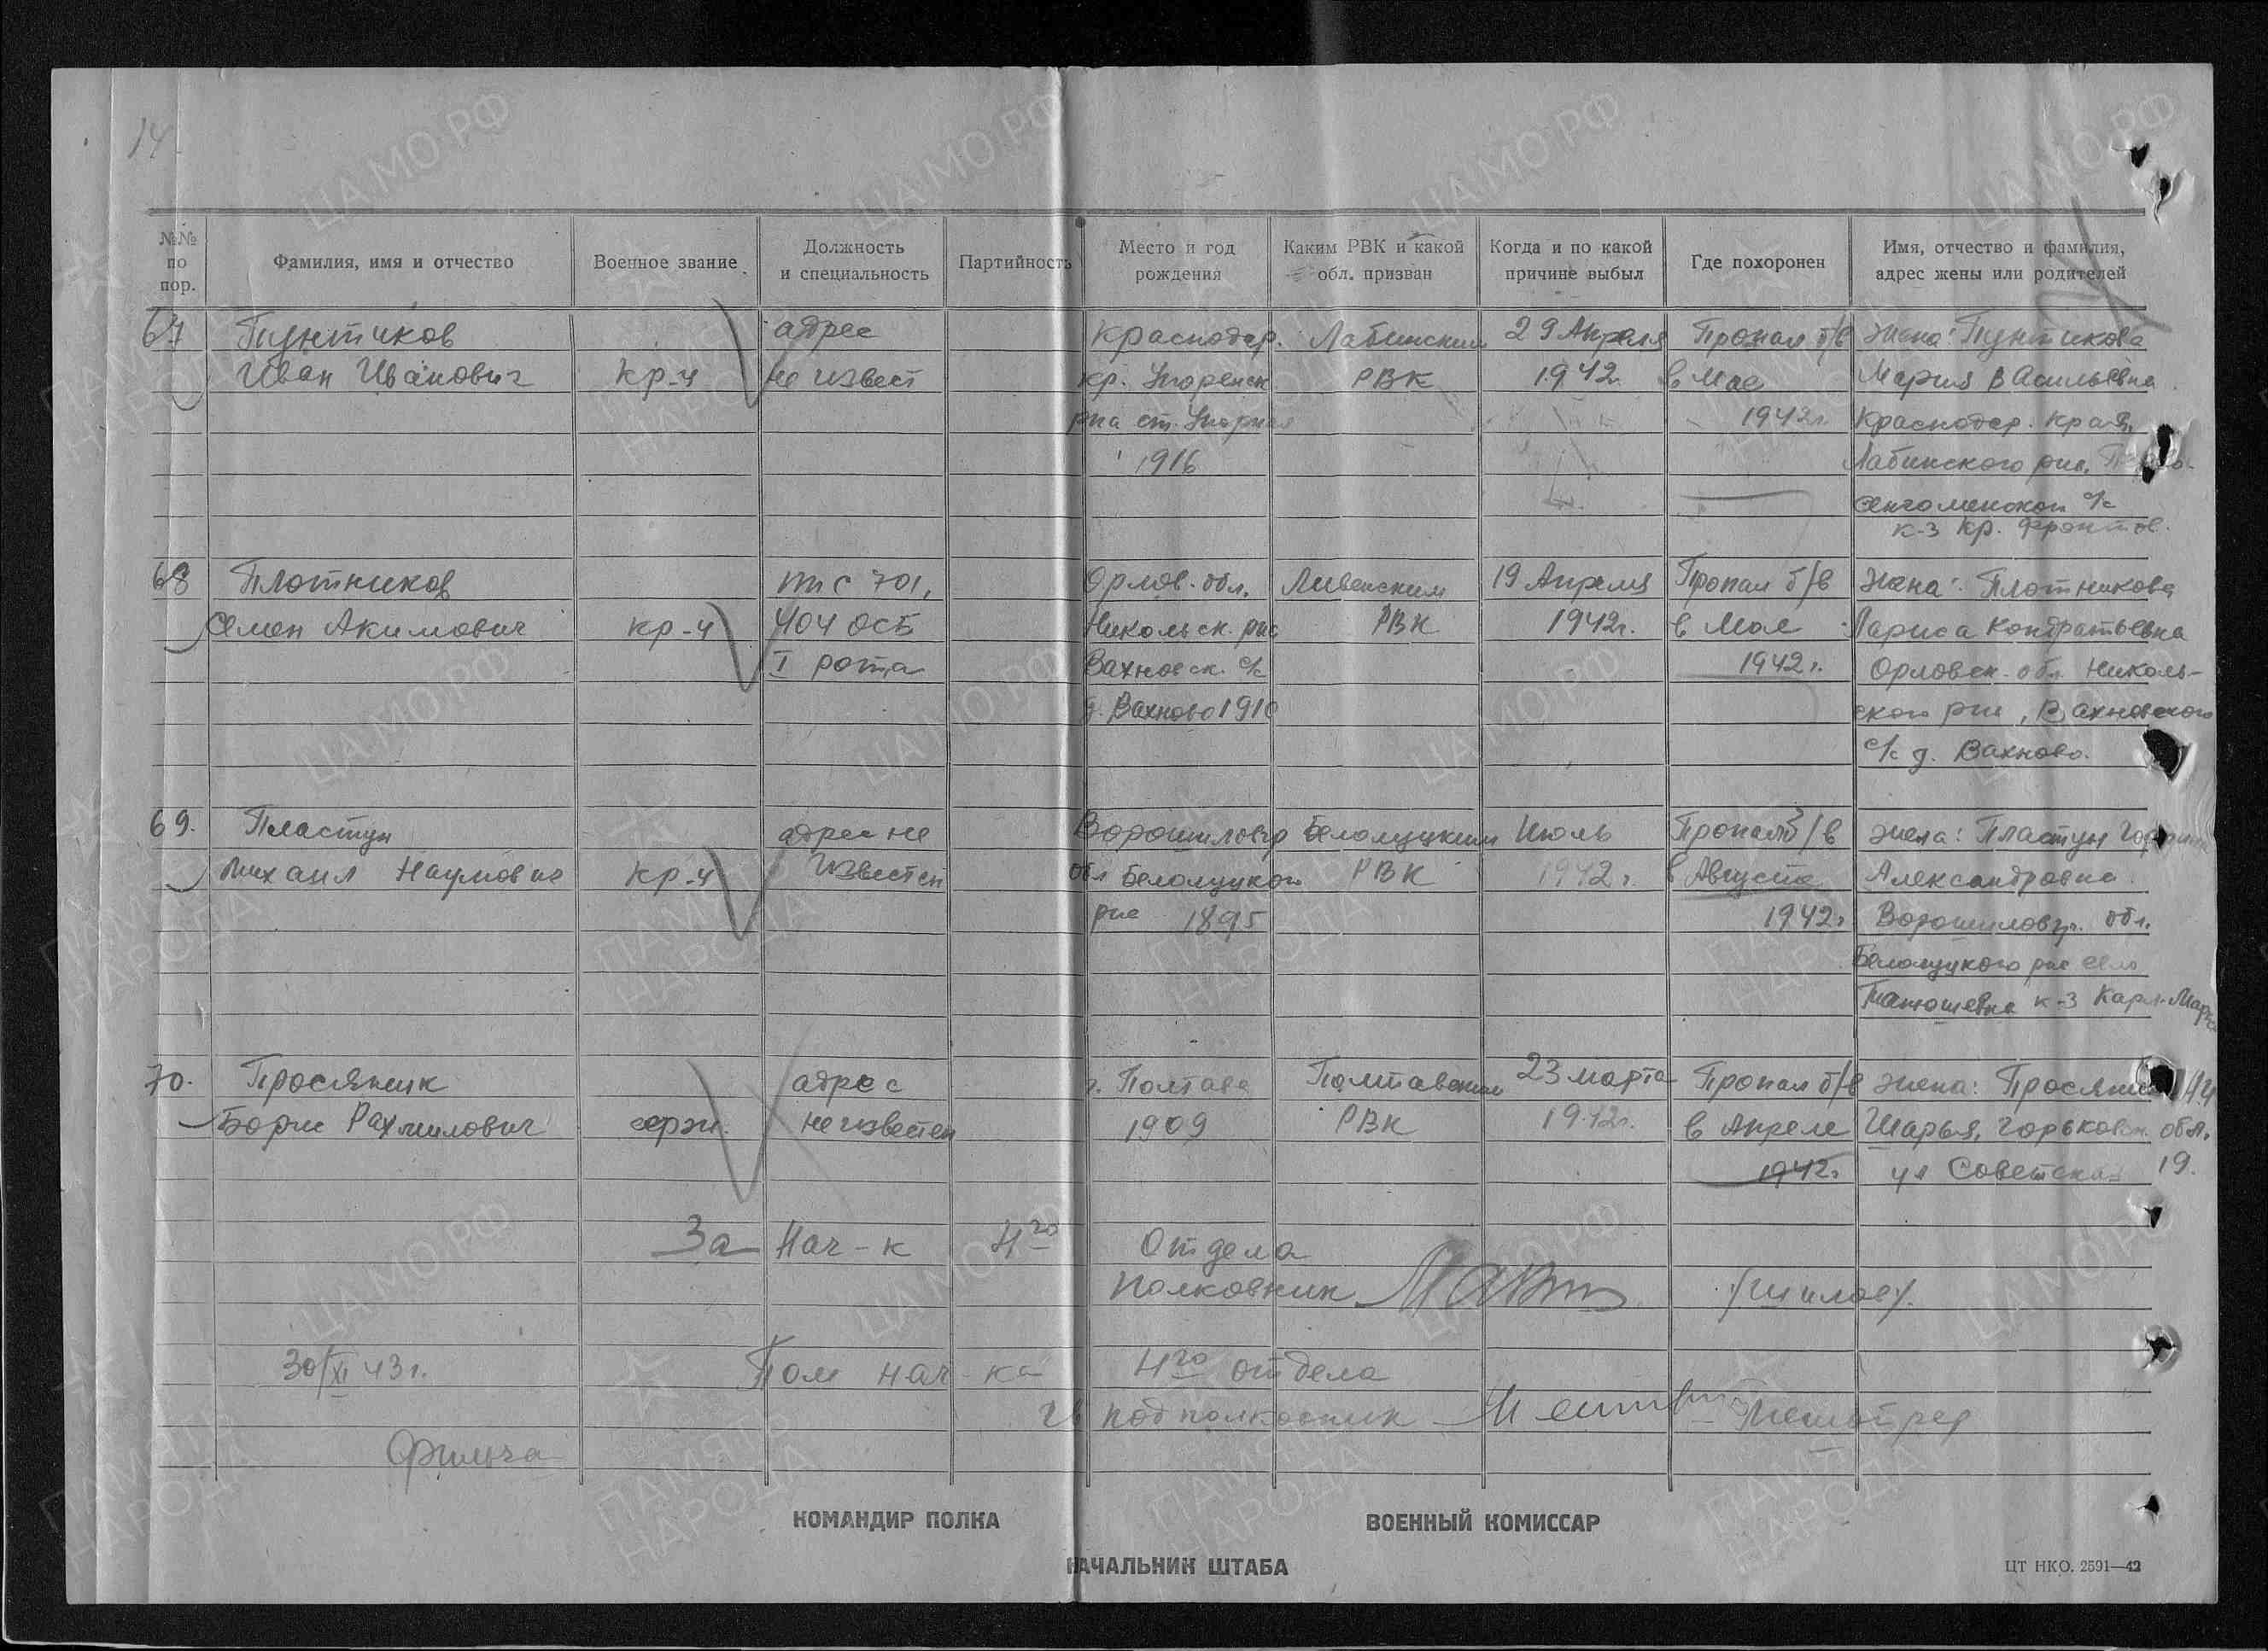 14
№№ по пор.
Фамилия, имя и отчество
Военное звание
Должность и специальность
Партийность
Место и год рождения
Каким РВК и какой обл. призван
Когда и по какой причине выбыл
Где похоронен
Имя, отчество и фамилия, адрес жены или родителей
67 Пунтиков адрес Краснодар. Лабинским 29 Апреля Пропал б/в жена: Пунтикова
Иван Иванович кр-ц не извест кр. РВК 1942 в Мае Мария Васильевна
рна ст. 1942г. Краснодар. края,
1916 Лабинского рна,
с/с
к-з Кр.
68 Плотников ттс 701, Орлов. обл. Ливенским 19 Апреля Пропал б/в жена: Плотникова
Семен Акимович кр-ц 404 ОСБ Никольск. рна РВК 1942г. в Мае Лариса Кондратьевна
I рота Вахновск. с/с 1942г. Орловск. обл. Николь-
д. Вахново 1910 ского рна, Вахновского
с/с д. Вахново.
69. Пластун адрес не Ворошиловгр Белолуцким Июль Пропал б/в жена: Пластун
Михаил Наумович кр-ц известен обл Белолуцкого РВК 1942г. в Августе Александровна
рна 1895 1942г Ворошиловгр. обл.
Белолуцкого рна село
Танюшевка к-з Карл-Маркса
70. Просяник адрес г. Полтава Полтавским 23 марта Пропал б/в жена:
Борис Рахмилович серж. не известен 1909 РВК 1942г. в Апреле Шарья, Горьковск. обл.
1942г ул Советская 19.
За Нач-к 4го Отдела
полковник /Шилов/.
30/XI 43г. Пом нач-ка 4го отдела
подполковник
КОМАНДИР ПОЛКА
ВОЕННЫЙ КОМИССАР
НАЧАЛЬНИК ШТАБА
ЦТ НКО. 2591—42
ЦАМО.РФ
ПАМЯТЬ НАРОДА